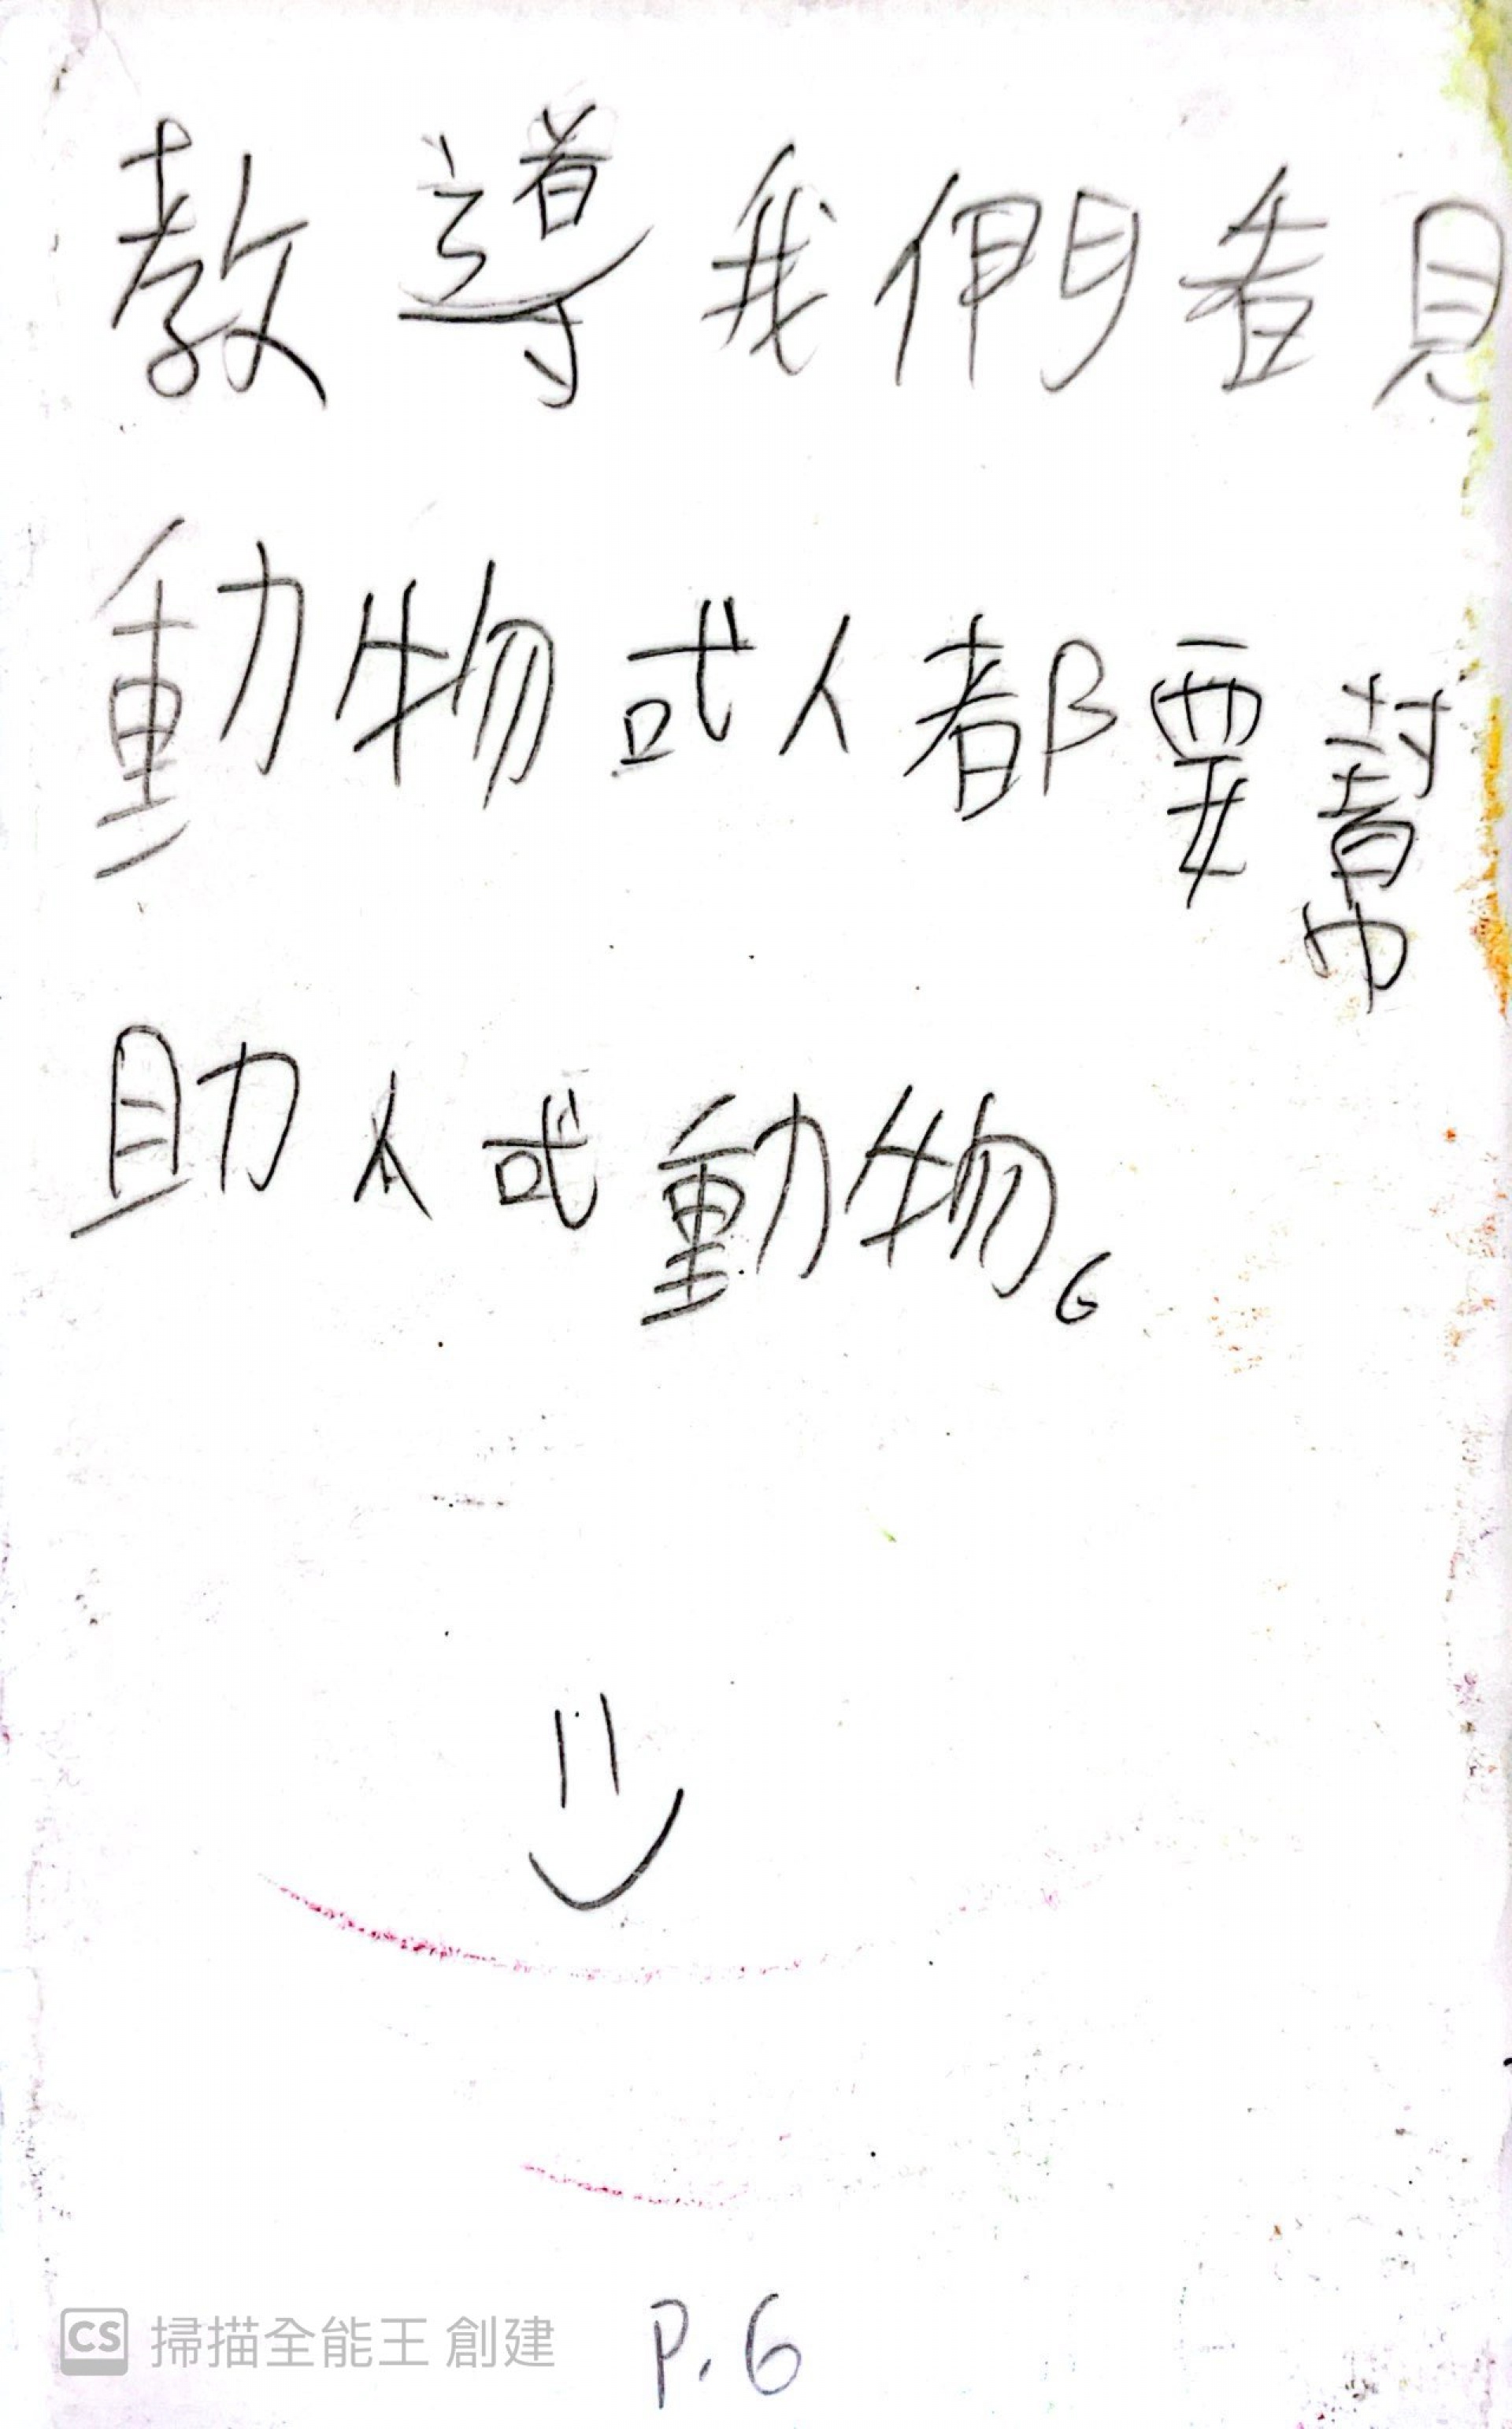 教導我們看見
動物或人都要幫
助人或動物。
P.6
CS 掃描全能王 創建